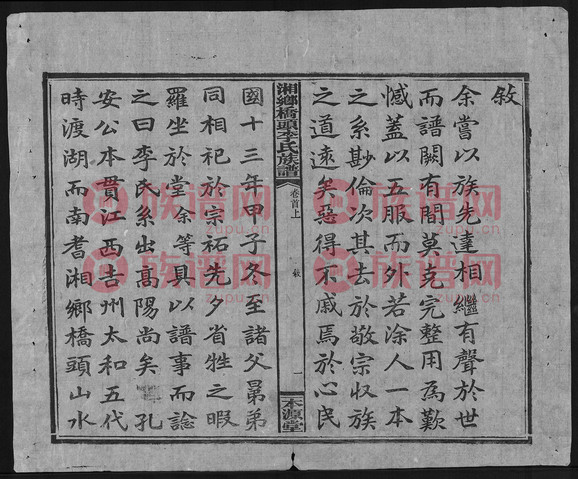 敘
余嘗以族先達相繼有聲於世
而譜闕有閒莫克完整用為歎
憾蓋以五服而外若涂人一本
之系尠倫次其去於敬宗收族
之道遠矣惡得不戚焉於心民
湘鄉橋頭李氏族譜
卷首上
敘
一
本源堂
國十三年甲子冬至諸父晜弟
同相祀於宗祏先夕省牲之暇
羅坐於堂余等具以譜事而諗
之曰李氏系出高陽尚矣 孔
安公本貫江西吉州太和五代
時渡湖而南耆湘鄉橋頭山水
族谱网
zupu.cn